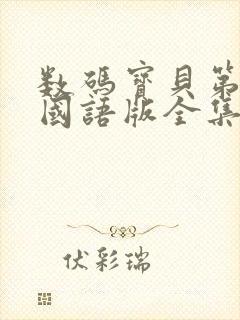 数碼寶貝第
國語版全集
伏彩瑞